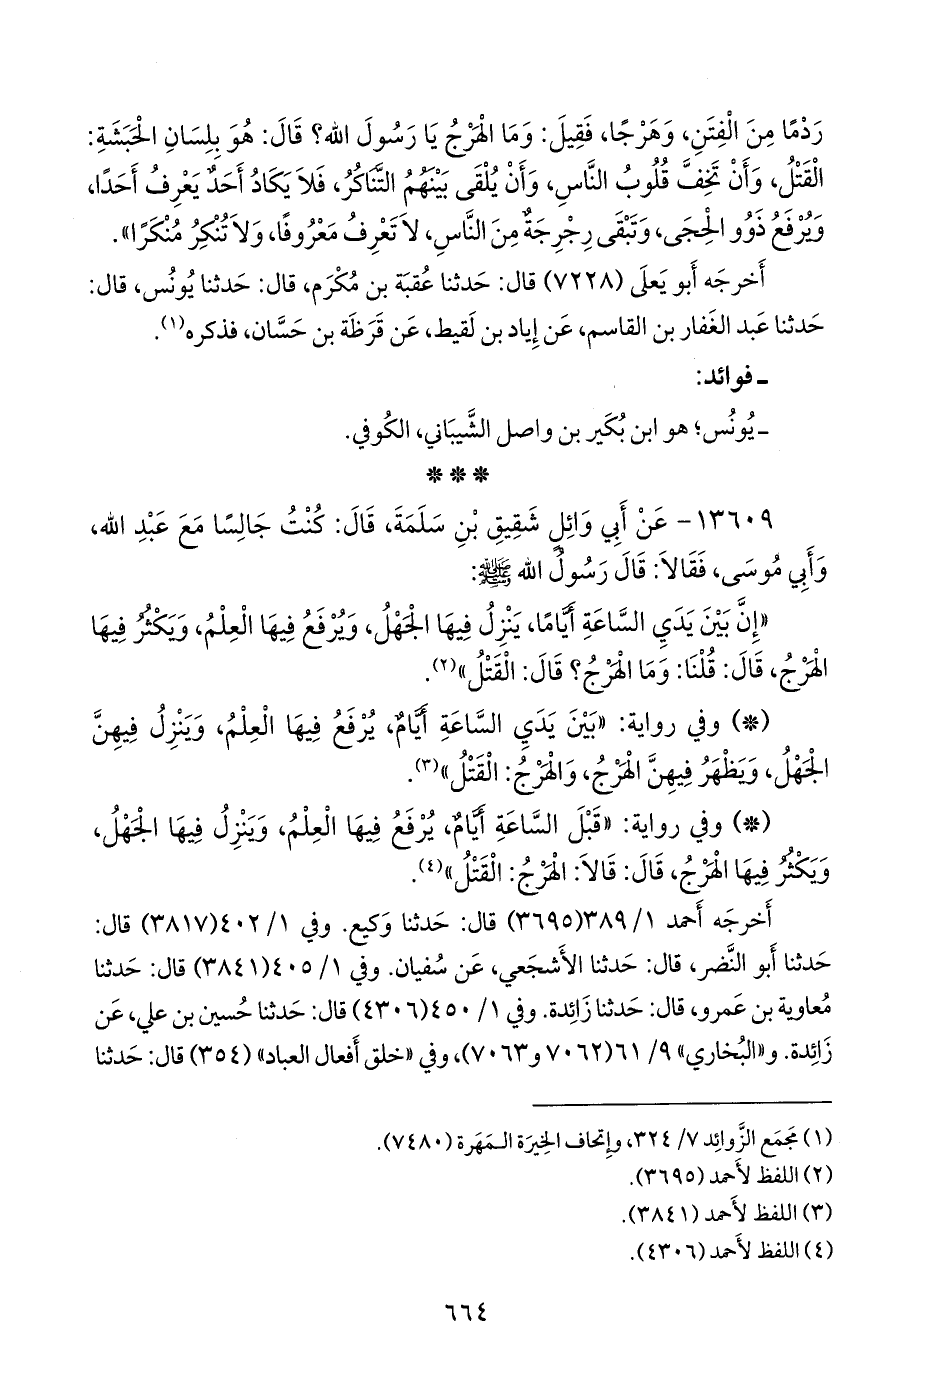 رَدْمًا مِنَ الْفِتَنِ، وَهَرْجًا، فَقِيلَ: وَمَا الْهَرْجُ يَا رَسُولَ الله؟ قَالَ: هُوَ بِلِسَانِ الْحَبَشَةِ:
الْقَتْلُ، وَأَنْ تَخِفَّ قُلُوبُ النَّاسِ، وَأَنْ يُلْقَى بَيْنَهُمُ التَّنَاكُرُ، فَلاَ يَكَادُ أَحَدٌ يَعْرِفُ أَحَدًا،
وَيُرْفَعُ ذَوُو الْحِجَى، وَتَبْقَى رِجْرِجَةٌ مِنَ النَّاسِ، لاَ تَعْرِفُ مَعْرُوفًا، وَلاَ تُنْكِرُ مُنْكَرًا».
أَخرجَه أَبو يَعلَى (٧٢٢٨) قال: حَدثنا عُقبَة بن مُكْرَم، قال: حَدثنا يُونُس، قال:
حَدثنا عَبد الغَفار بن القاسم، عَن إِياد بن لَقيط، عَن قَرَظَة بن حَسَّان، فذكره(١).
ـ فوائد:
ـ يُونُس؛ هو ابن بُكَير بن واصل الشَّيباني، الكُوفي.
* * *
١٣٦٠٩- عَنْ أَبِي وَائِلٍ شَقِيقِ بْنِ سَلَمَةَ، قَالَ: كُنْتُ جَالِسًا مَعَ عَبْدِ الله،
وَأَبِي مُوسَى، فَقَالاَ: قَالَ رَسُولُ الله ﷺ:
«إِنَّ بَيْنَ يَدَيِ السَّاعَةِ أَيَّامًا، يَنْزِلُ فِيهَا الْجَهْلُ، وَيُرْفَعُ فِيهَا الْعِلْمُ، وَيَكْثُرُ فِيهَا
الْهَرْجُ، قَالَ: قُلْنَا: وَمَا الْهَرْجُ؟ قَالَ: الْقَتْلُ»(٢).
(*) وفي رواية: «بَيْنَ يَدَيِ السَّاعَةِ أَيَّامٌ، يُرْفَعُ فِيهَا الْعِلْمُ، وَيَنْزِلُ فِيهِنَّ
الْجَهْلُ، وَيَظْهَرُ فِيهِنَّ الْهَرْجُ، وَالْهَرْجُ: الْقَتْلُ»(٣).
(*) وفي رواية: «قَبْلَ السَّاعَةِ أَيَّامٌ، يُرْفَعُ فِيهَا الْعِلْمُ، وَيَنْزِلُ فِيهَا الْجَهْلُ،
وَيَكْثُرُ فِيهَا الْهَرْجُ، قَالَ: قَالاَ: الْهَرْجُ: الْقَتْلُ»(٤).
أَخرجَه أَحمد ١/ ٣٨٩(٣٦٩٥) قال: حَدثنا وَكيع. وفي ١/ ٤٠٢(٣٨١٧) قال:
حَدثنا أَبو النَّضر، قال: حَدثنا الأَشجَعي، عَن سُفيان. وفي ١/ ٤٠٥(٣٨٤١) قال: حَدثنا
مُعاوية بن عَمرو، قال: حَدثنا زَائِدة. وفي ١/ ٤٥٠(٤٣٠٦) قال: حَدثنا حُسين بن علي، عَن
زَائِدة. و«البُخاري» ٩/ ٦١(٧٠٦٢ و٧٠٦٣)، وفي «خلق أَفعال العباد» (٣٥٤) قال: حَدثنا
(١) مَجمَع الزَّوائِد ٧/ ٣٢٤، وإِتحاف الخِيرَة الـمَهَرة (٧٤٨٠).
(٢) اللفظ لأَحمد (٣٦٩٥).
(٣) اللفظ لأَحمد (٣٨٤١).
(٤) اللفظ لأَحمد (٤٣٠٦).
٦٦٤